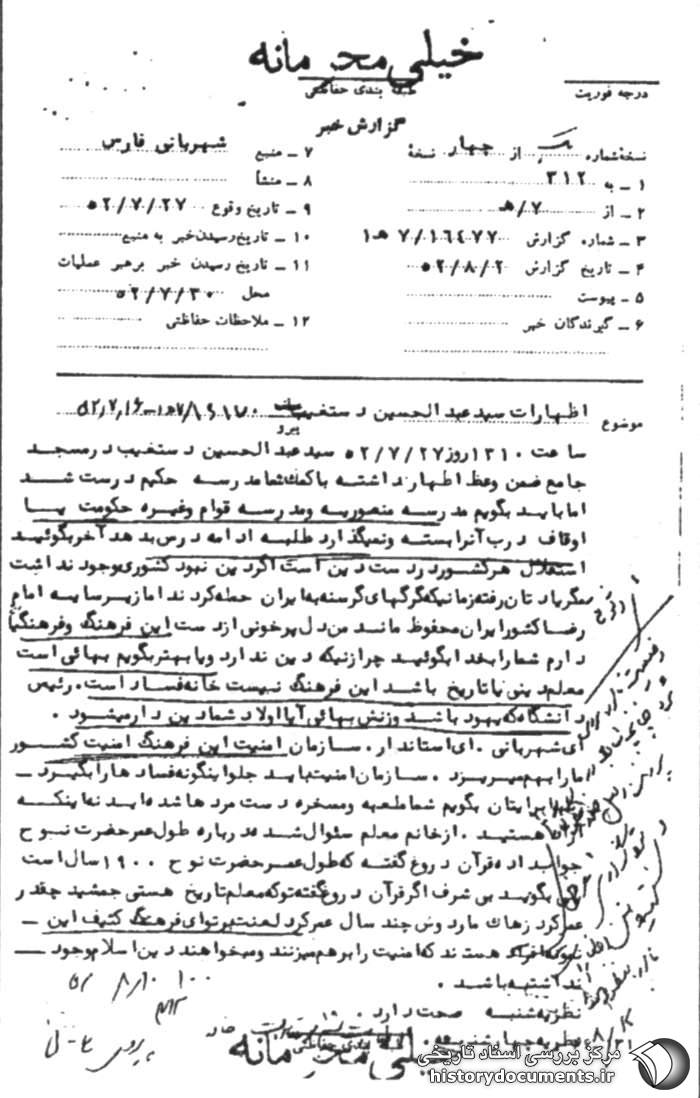 خیلی محرمانه
طبقه بندی حفاظتی
درجه فوریت
گزارش خبر
نسخهٔ شماره یک از چهار نسخهٔ
۱ ـ به ۳۱۲
۲ ـ از ۷/هـ
۳ ـ شماره گزارش ۷/۱۶۴۷۷ هـ ۱
۴ ـ تاریخ گزارش ۵۲/۸/۲
۵ ـ پیوست
۶ ـ گیرندگان خبر
۷ ـ منبع شهربانی فارس
۸ ـ منشأ
۹ ـ تاریخ وقوع ۵۲/۷/۲۷
۱۰ ـ تاریخ رسیدن خبر به منبع
۱۱ ـ تاریخ رسیدن خبر برهبر عملیات
محل ۵۲/۷/۳۰
۱۲ ـ ملاحظات حفاظتی
موضوع اظهارات سید عبدالحسین دستغیب
پیرو
ساعت ۱۳۱۰ روز ۵۲/۷/۲۷ سید عبدالحسین دستغیب در مسجد
جامع ضمن وعظ اظهار داشته با کمک شما مدرسه حکیم درست شد
اما باید بگویم مدرسه منصوریه و مدرسه قوام و غیره حکومت یا
اوقاف درب آنرا بسته و نمیگذارد طلبه ادامه درس بدهد آخر بگوئید
استقلال هر کشور در دست دین است اگر دین نبود کشوری وجود نداشت
مگر یادتان رفته زمانیکه گرگهای گرسنه به ایران حمله کردند اما زیر سایه امام
رضا کشور ایران محفوظ ماند من دل پر خونی از دست این فرهنگ و فرهنگیا
دارم شما را بخدا بگوئید چرا زنیکه دین ندارد و یا بهتر بگویم بهائی است
معلم دینی یا تاریخ باشد این فرهنگ نیست خانه فساد است. رئیس
دانشگاه که یهود باشد و زنش بهائی آیا اولاد شما دین دار میشود .
ای شهربانی . ای استاندار . سازمان امنیت این فرهنگ امنیت کشور
ما را بهم میریزد . سازمان امنیت باید جلو اینگونه فسادها را بگیرد ـ
برایتان بگویم شما طعمه و مسخره دست مردها شده اید نه اینکه
هستید . از خانم معلم سئوال شده درباره طول عمر حضرت نوح
جواب داده قرآن دروغ گفته که طول عمر حضرت نوح ۱۹۰۰ سال است
بگوئید بی شرف اگر قرآن دروغ گفته تو که معلم تاریخ هستی جمشید چقدر
عمر کرد زهاک ماردوش چند سال عمر کرد لعنت بر تو ای فرهنگ کثیف این ـ
افراد هستند که امنیت را برهم میزنند و میخواهند دین اسلام وجود ـ
نداشته باشد .
نظریه شنبه صحت دارد .
نظریه چهارشنبه .
طبقه بندی حفاظتی
خیلی محرمانه
مرکز بررسی اسناد تاریخی
historydocuments.ir